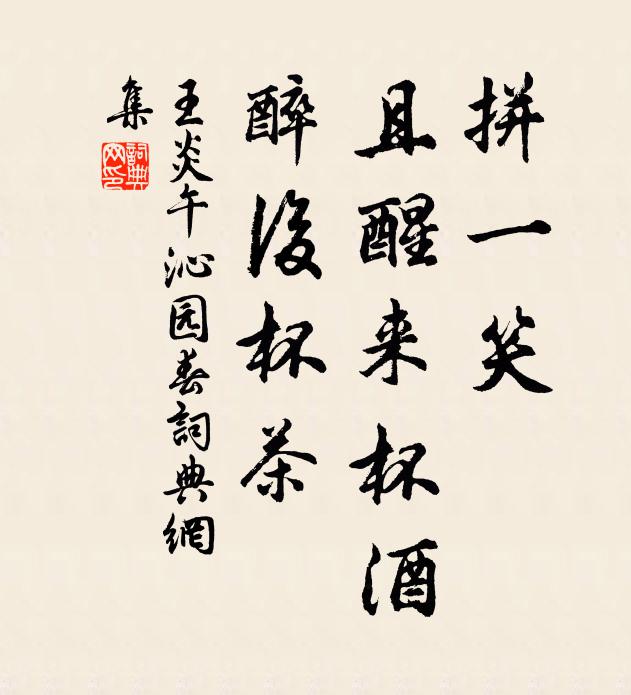 拼一笑
且醒来杯酒
醉後杯茶
王炎午沁园春詞典網
集
詞典网印